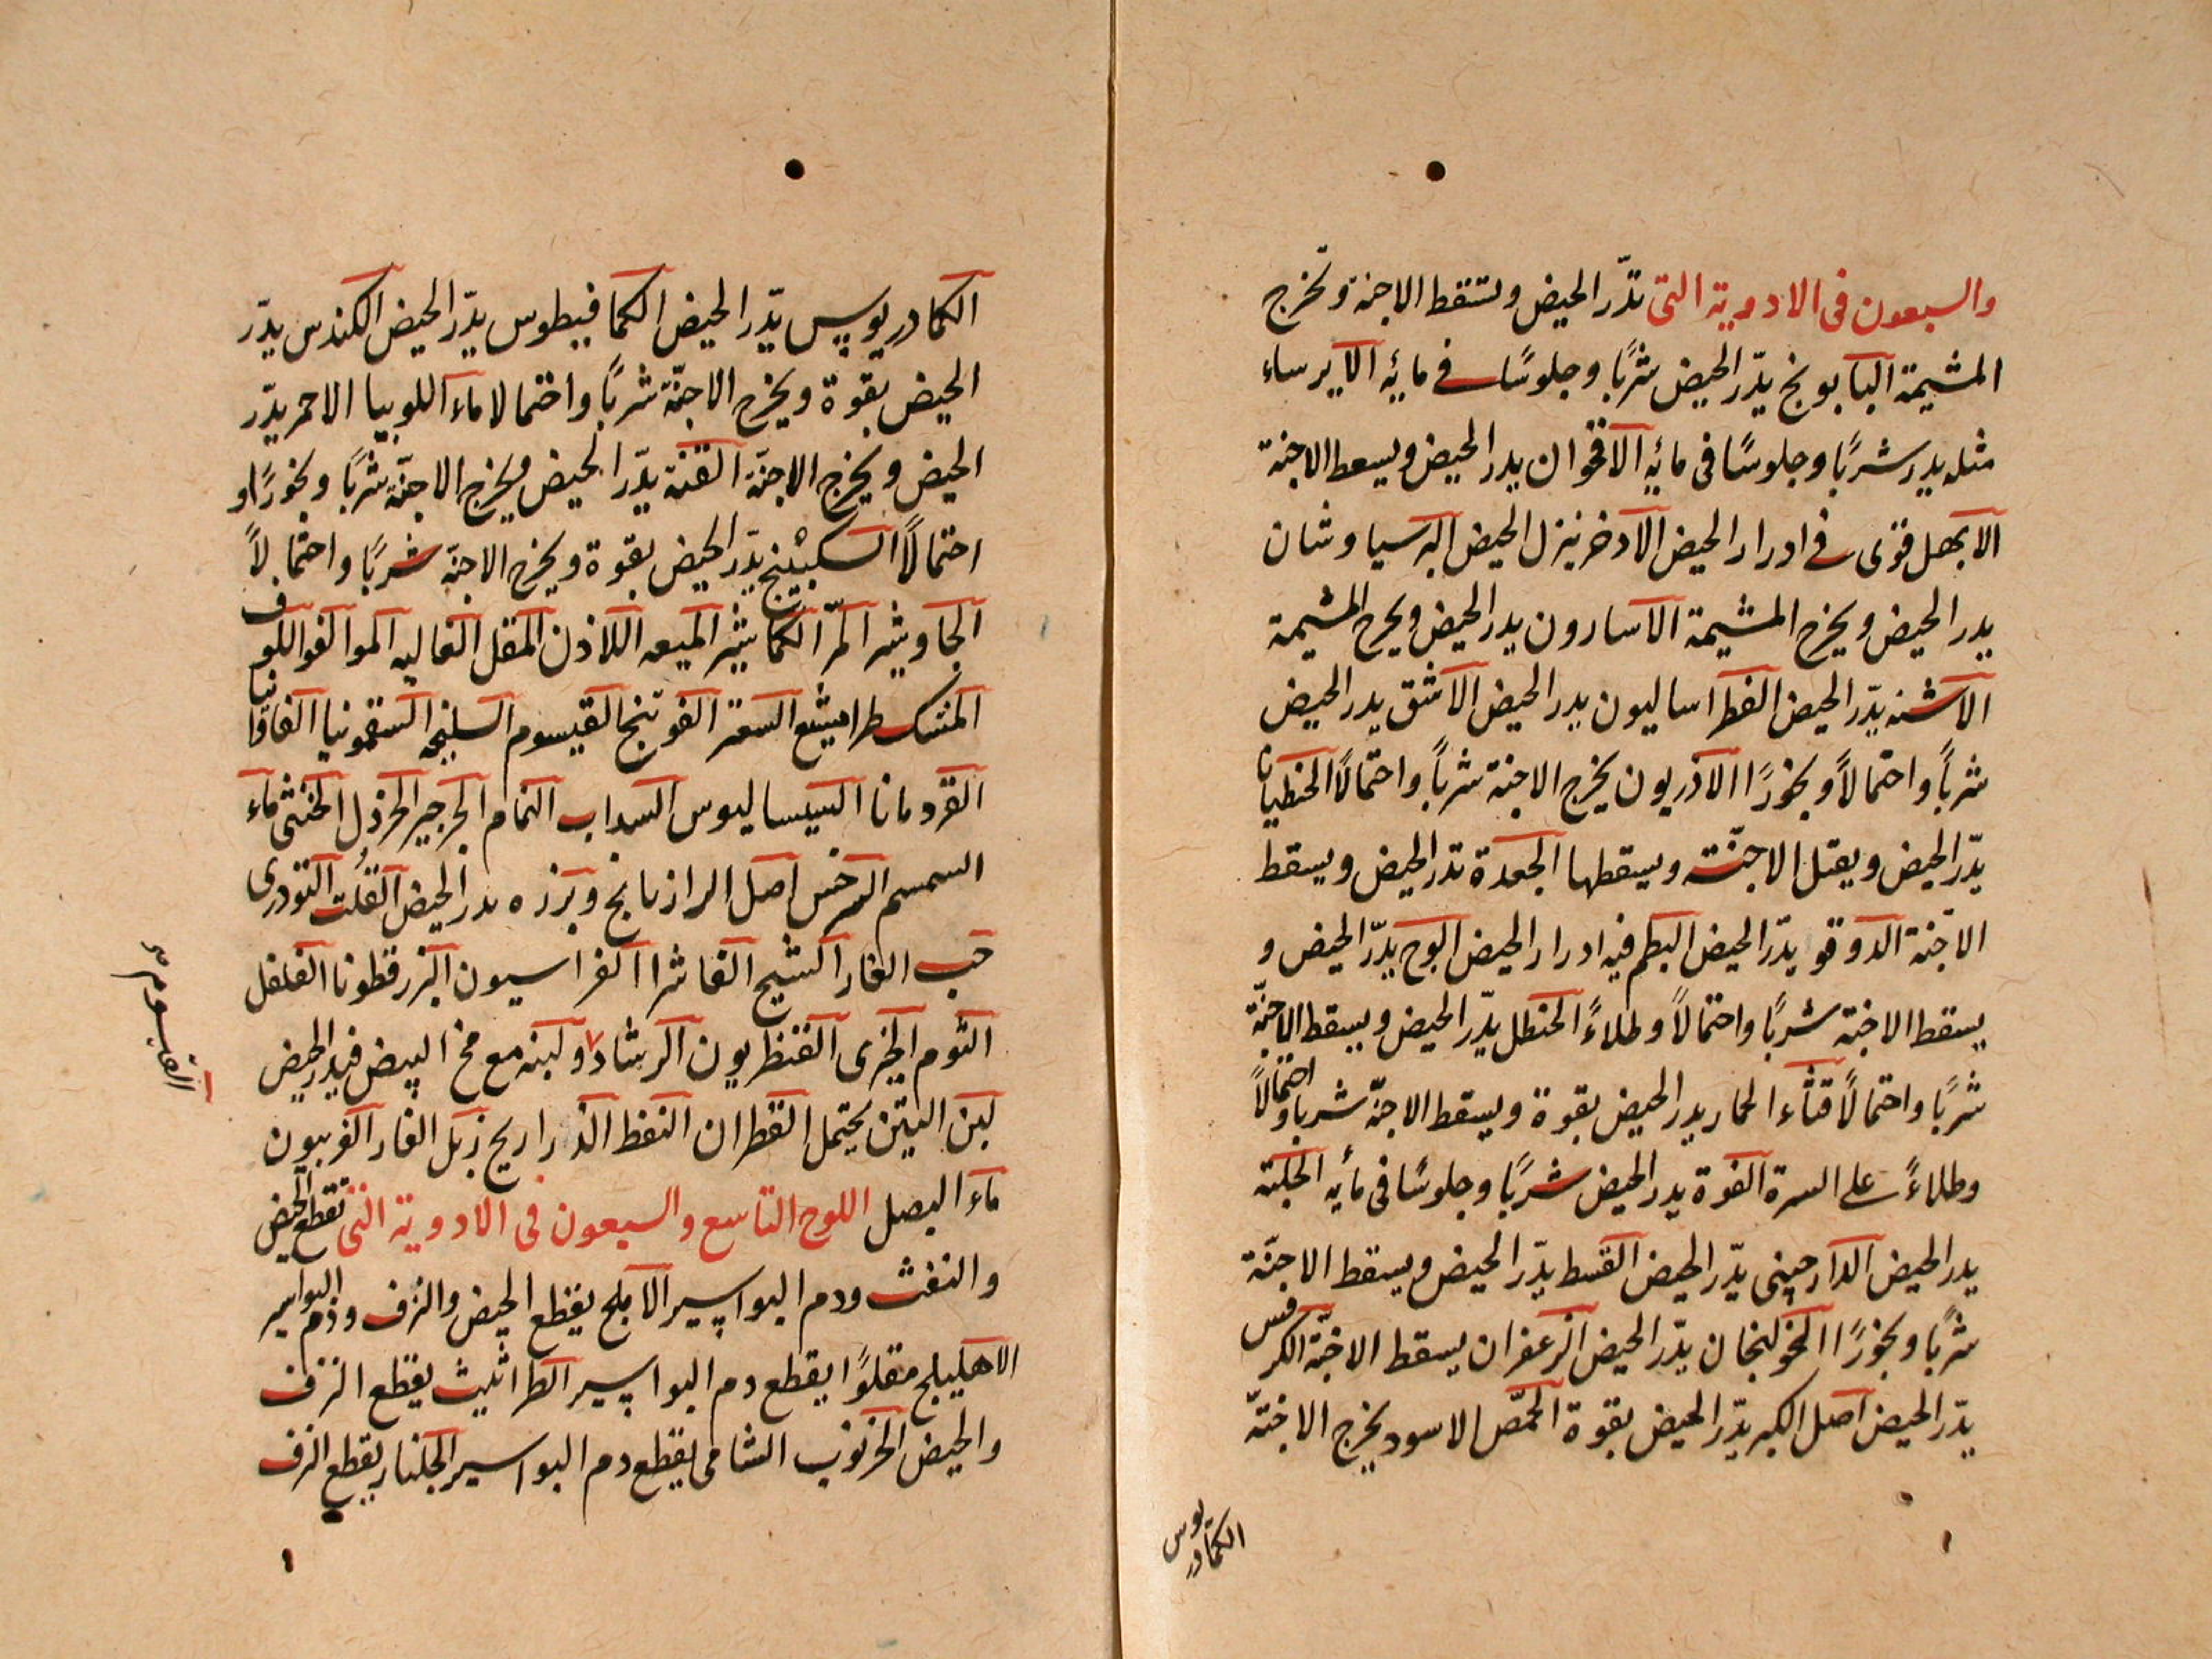 والسبعون فى الادوية التى تدّر الحيض وتسقط الاجنة وتخرج
المشيمة البابونج يدّر الحيض شربًا وجلوسًا فى مائه الايرساء
مثله يدر شربًا وجلوسًا فى مائه الاقحوان يدر الحيض ويسقط الاجنة
الابهل قوى فى ادرار الحيض الاذخر ينزل الحيض البرسياوشان
يدر الحيض ويخرج المشيمة الاسارون يدر الحيض ويخرج المشيمة
الاشنه يدّر الحيض الفطراساليون يدر الحيض الاشق يدر الحيض
شربًا واحتمالًا وبخورًا الاذريون يخرج الاجنة شربًا واحتمالًا الجنطيانا
يدّر الحيض ويقتل الاجنّة ويسقطها الجعدة تدر الحيض ويسقط
الاجنة الدوقو يدّر الحيض البطم فيه ادرار الحيض الوج يدّر الحيض و
يسقط الاجنة شربًا واحتمالًا وطلاءً الحنظل يدّر الحيض ويسقط الاجنّة
شربًا واحتمالًا قثاء الحمار يدر الحيض بقوة ويسقط الاجنّة شربا واحتمالًا
وطلاءً على السرة الفوة يدر الحيض شربًا وجلوسًا فى مائه الحلبة
يدر الحيض الدارچينى يدّر الحيض القسط يدّر الحيض ويسقط الاجنّة
شربًا وبخورًا الخولنجان يدّر الحيض الزعفران يسقط الاجنّة الكرفس
يدّر الحيض اصل الكبر يدّر الحيض بقوة الحمّص الاسود يخرج الاجنّة
الكمادريوس
الكمادريوس يدّر الحيض الكمافيطوس يدّر الحيض الكندس يدّر
الحيض بقوة ويخرج الاجنّة شربًا واحتمالا ماء اللوبيا الاحمر يدّر
الحيض ويخرج الاجنّة القنّة يدّر الحيض ويخرج الاجنّة شربًا وبخورًا و
احتمالًا السكبينج يدّر الحيض بقوة ويخرج الاجنّة شربًا واحتمالًا
الجاوشير المرّ الكماشير الميعه اللاذن المقل الغاليه المو الفو اللوف
المشكطرامشيع السعتر الفوتنج القيسوم السليخه السقمونيا الغافا
القردمانا السيساليوس السداب النمام الجرجير الخردل الخنثى ماء
السمسم السرخس اصل الرازيانج وبزره يدر الحيض القلت التودرى
حب الغار الشيح الفاشرا الفراسيون البزرقطونا الفلفل
الثوم الخيرى القنطريون الرشاد ولبنه مع مخ البيض فيدر الحيض
لبن التين يحتمل القطران النفط الذراريح زبل الفار الفربيون
ماء البصل اللوح التاسع والسبعون فى الادوية التى تقطع الحيض
والنفث ودم البواسير الاملج يقطع الحيض والنزف ودم البواسير
الاهليلج مقلوًا يقطع دم البواسير الطراثيث يقطع النزف
والحيض الخرنوب الشامى يقطع دم البواسير الجلنار يقطع النزف